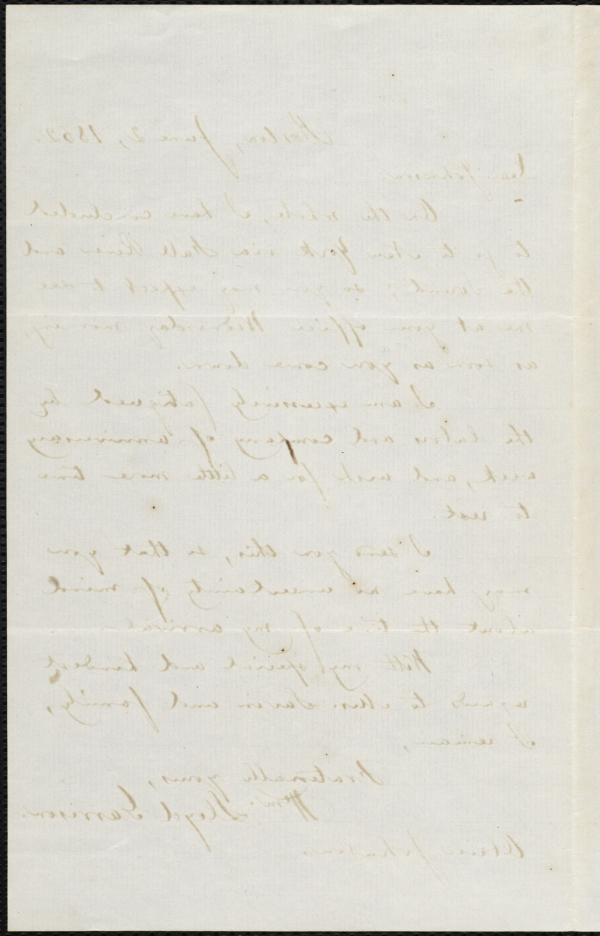 Boston, June 2, 1862.
Dear Johnson:
On the whole, I have concluded
to go to New York via Fall River and
the Sound; so you may expect to see
me at your office Wednesday morning,
as soon as you come down.
I am excessively fatigued by
the labors and company of anniversary
week, and wish for a little more time
to rest.
I send you this, so that you
may have no uncertainty of mind
about the time of my arrival.
With my special and kindest
regards to Mrs. Savin and family,
I remain,
Fraternally yours,
Wm. Lloyd Garrison.
Oliver Johnson.